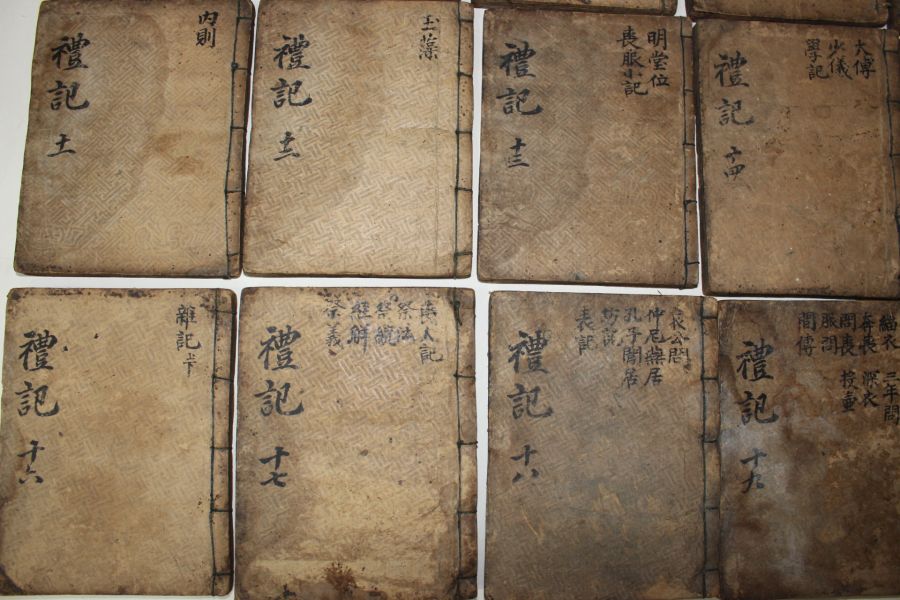 內則
禮記 十一
玉藻
禮記 十二
明堂位
喪服小記
禮記 十三
大傳
少儀
學記
禮記 十四
雜記上下
禮記 十六
喪大記
祭法
祭統
經解
祭義
禮記 十七
哀公問
仲尼燕居
孔子閒居
坊記
表記
禮記 十八
緇衣 三年問
奔喪 深衣
問喪 投壺
服問
間傳
禮記 十九